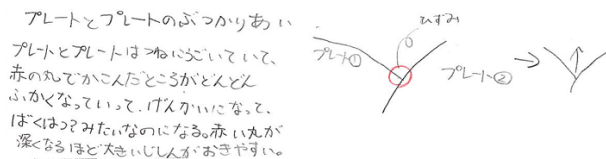 プレートとプレートのぶつかりあい
プレートとプレートはつねにうごいていて、
赤の丸でかこんだところがどんどん
ふかくなっていって、げんかいになって、
ばくはつ?みたいなのになる。赤い丸が
深くなるほど大きいじしんがおきやすい。
ひずみ
プレート①
プレート②